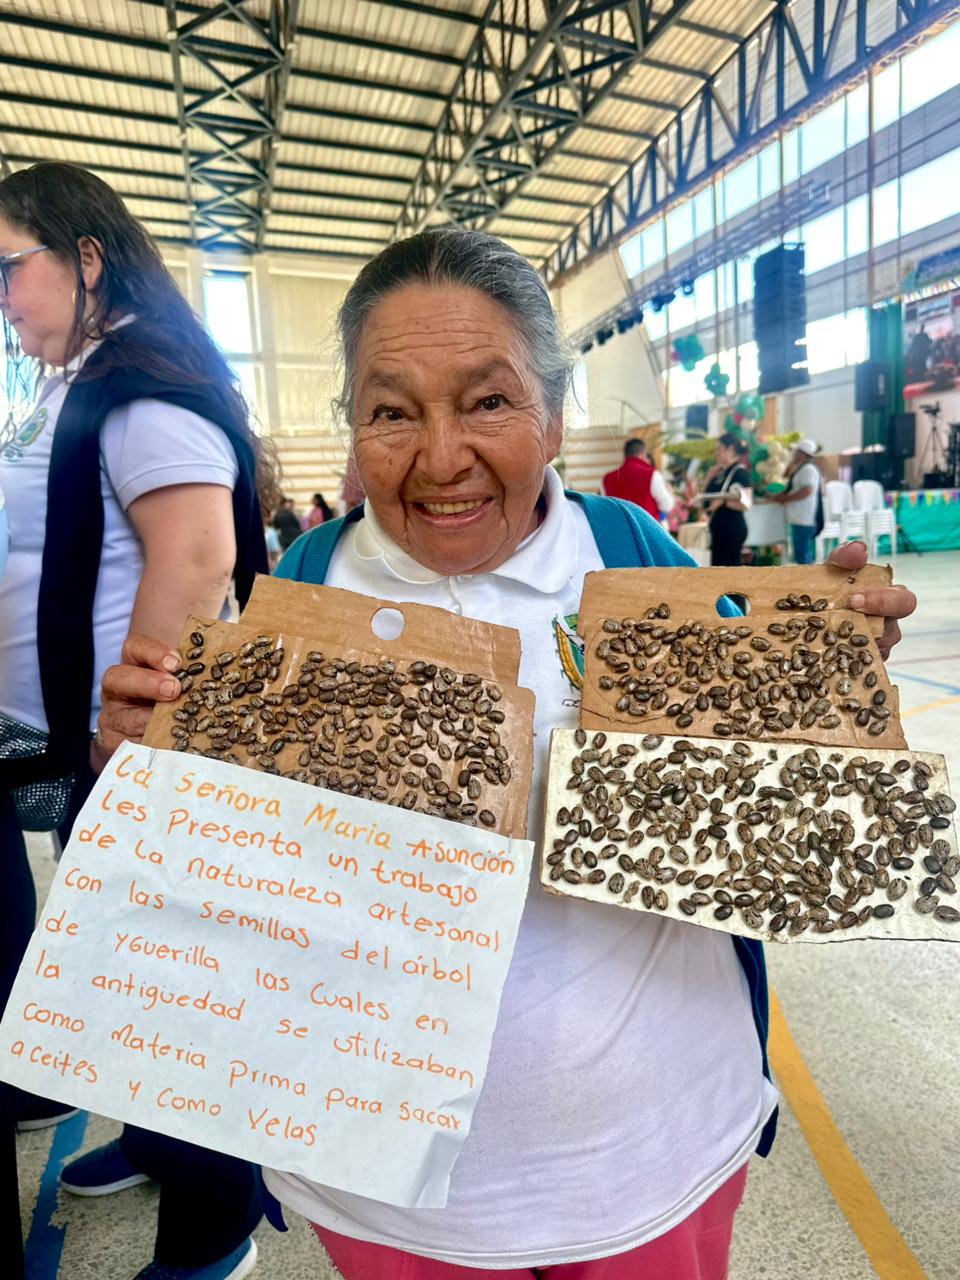 La Señora Maria Asunción
les Presenta un trabajo
de la naturaleza artesanal
con las semillas del árbol
de yguerilla las cuales en
la antigüedad se utilizaban
como Materia Prima para sacar
aceites y como velas